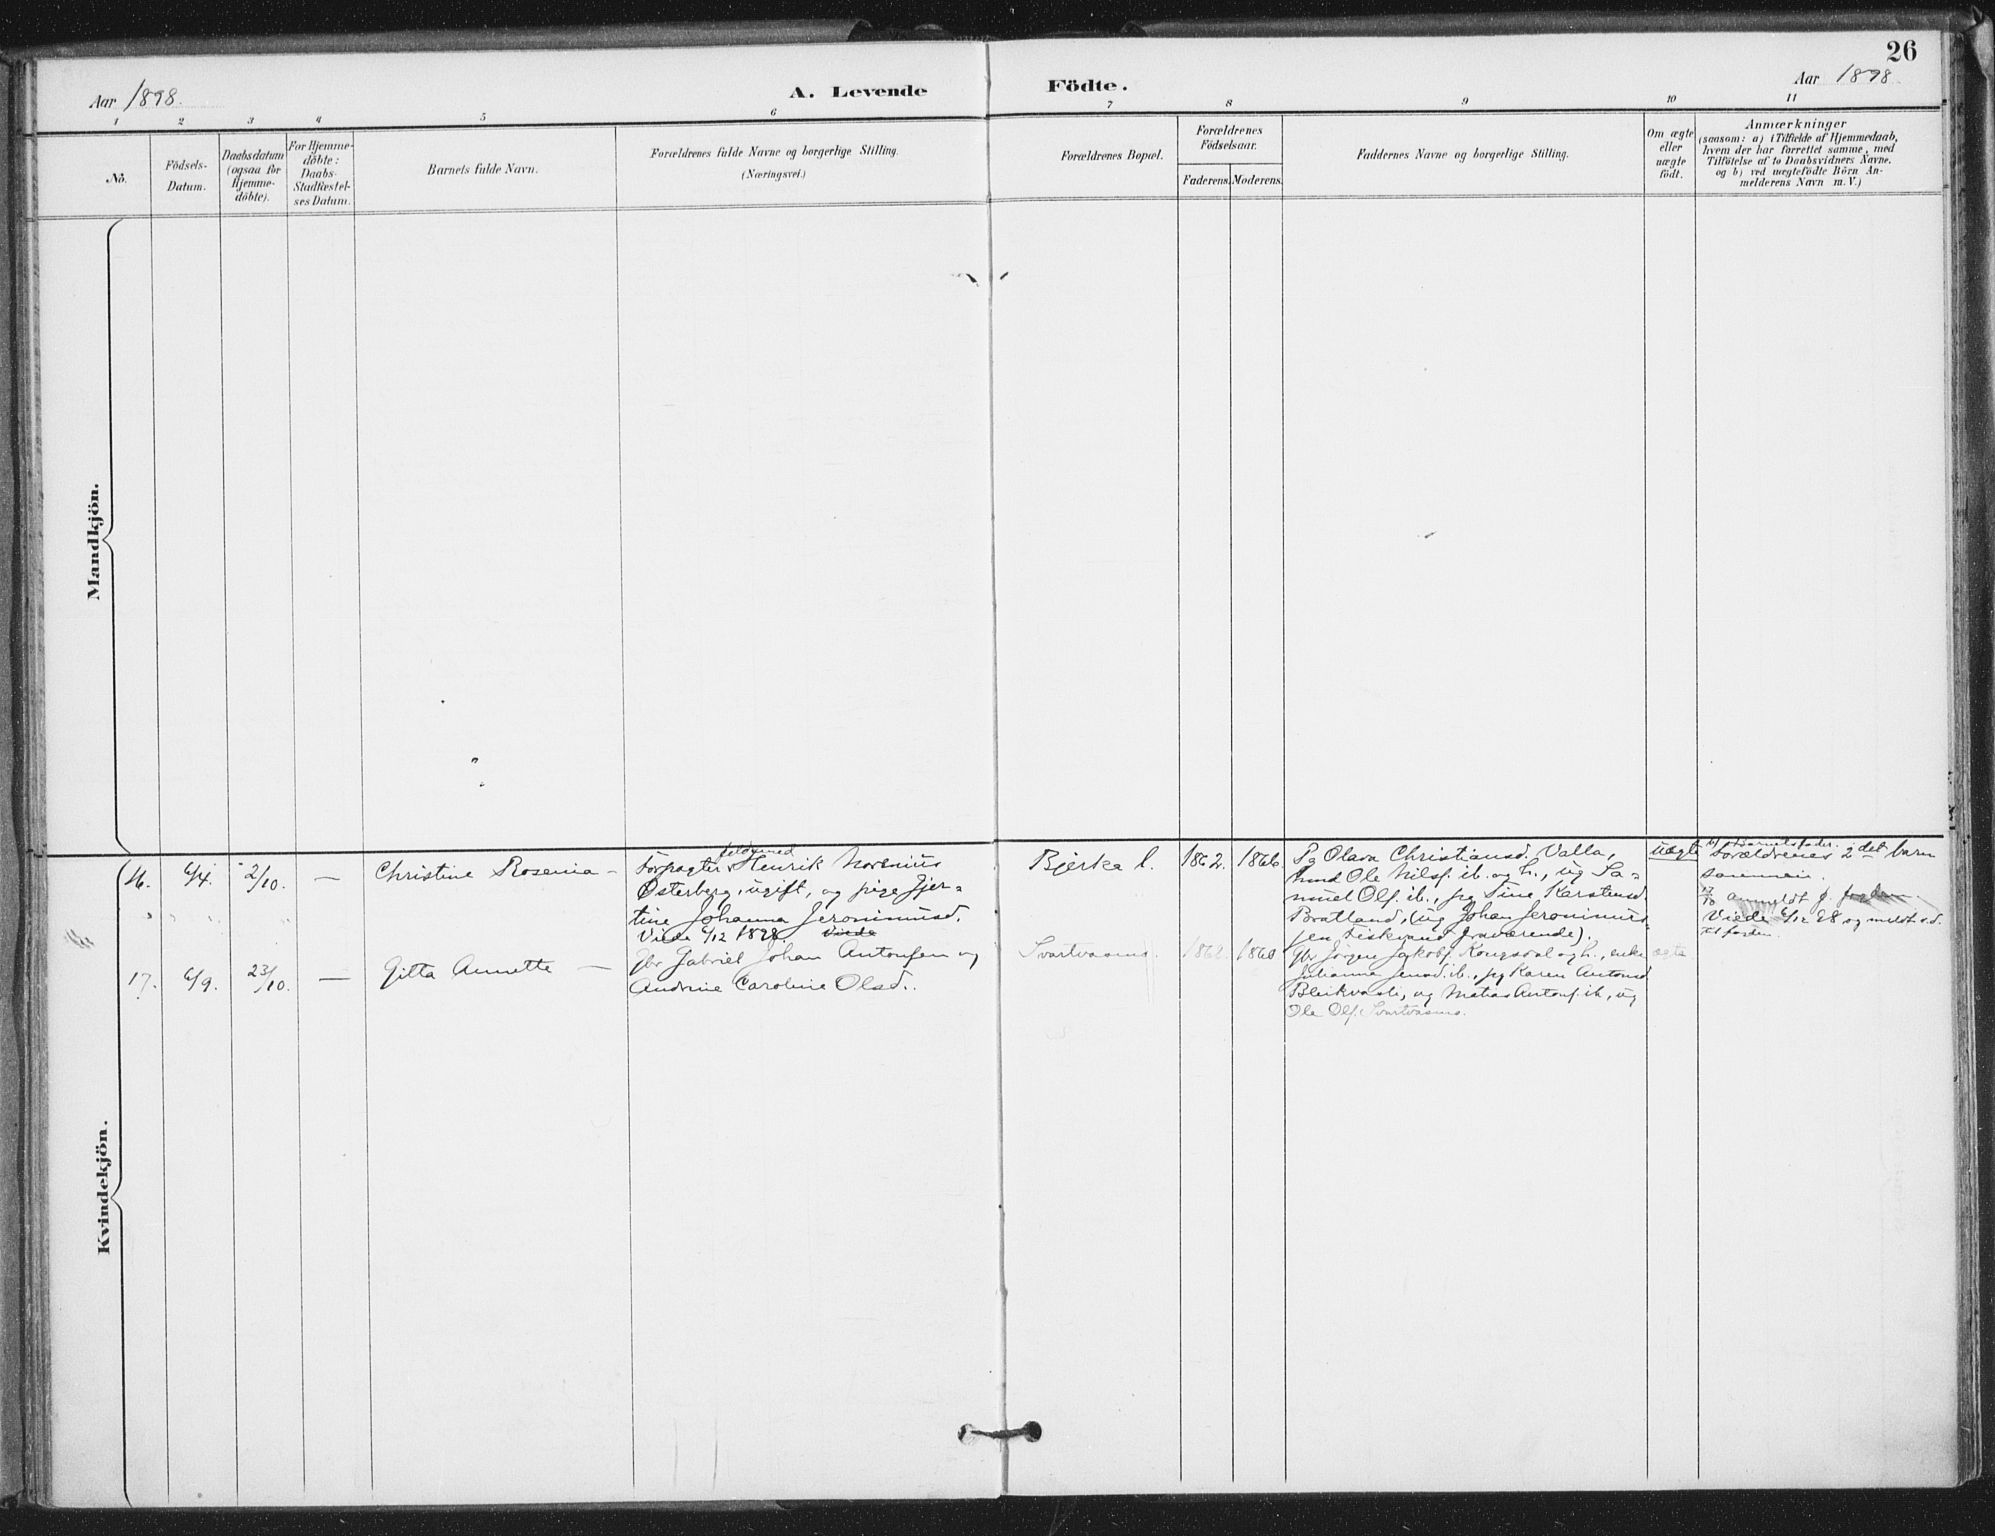 26
Aar 1898.
A. Levende Födte.
Aar 1898
1 2 3 4 5 6 7 8 9 10 11
No.
Födsels-
Datum.
Daabsdatum
(ogsaa for
Hjemme-
döbte).
For Hjemme-
döbte:
Daabs-
Stadfæstel-
ses Datum.
Barnets fulde Navn.
Forældrenes fulde Navne og borgerlige Stilling.
(Næringsvei.)
Forældrenes Bopæl.
Forældrenes
Födselsaar.
Faderens.
Moderens.
Faddernes Navne og borgerlige Stilling.
Om ægte
eller
uægte
födt.
Anmærkninger
(saasom: a) i Tilfælde af Hjemmedaab,
hvem der har forrettet samme, med
Tilföielse af to Daabsvidners Navne.
og b) ved uægtefödte Börn An-
melderens Navn m. V.)
Mandkjön.
Kvindekjön.
16. 6/4. 2/10. — Christine Rosenia —
Forpagter Henrik Norenius
Østerberg, ugift, og pige Hjer-
tine Johanna Jeronimusd.
Viede 6/12 1898 Viede
Bjerka l. 1862. 1866.
Pg Olava Christiansd. Valla,
hmd Ole Nilsf. ib. og h., ug Sa-
muel Olf. ib., pg Tine Karstensd.
Bratland, (ug Johan Jeronimus-
sen fraværende).
uægte
Barnets fader.
Forældrenes 2det barn
sammen.
17/10 anmeldt f.
Viede 6/12 98 og meldt s.d.
til
17. 6/9. 23/10. — Gitta Annette —
Gbr Gabriel Johan Antonsen og
Andrine Caroline Olsd.
Svartvasmo. 1862. 1860
Gbr Jörgen Jakobf. Kongsdal og h., enke
Julianna Jensd. ib., pg Karen Antonsd.
Bleikvasli, ug Matias Antonf. ib., ug
Ole Olf. Svartvasmo.
ægte